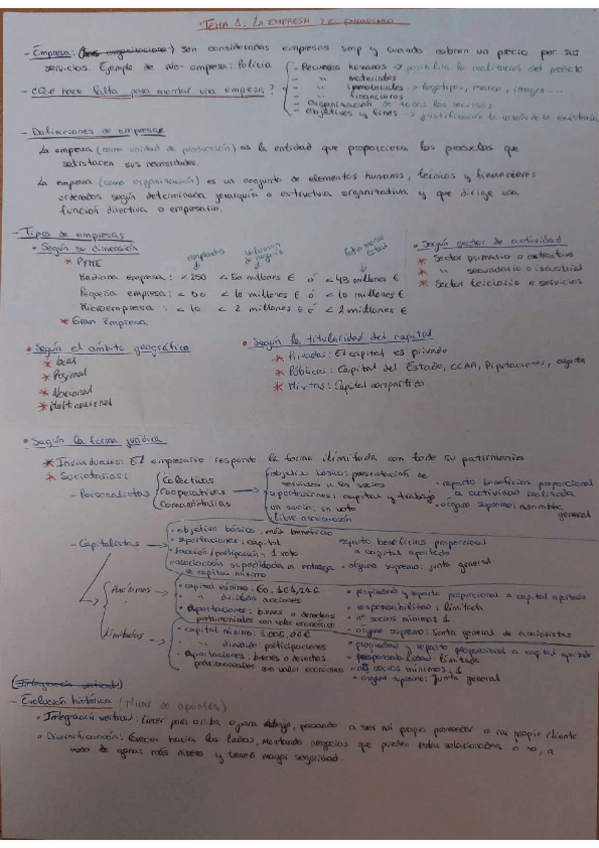 TEMA 1: LA EMPRESA Y EL EMPRESARIO
- Empresa: son consideradas empresas smp y cuando cobren un precio por sus
servicios. Ejemplo de no-empresa: Policía
- ¿Qué hace falta para montar una empresa?
- Recursos humanos → posibilita la realización del
- " materiales
- " inmateriales → logotipos, marca, imagen...
- " financieros
- Organización de todos los recursos
- Objetivos y fines → justificación la de la existencia
- Definiciones de empresa
La empresa (como unidad de producción) es la entidad que proporciona los productos que
satisfacen sus necesidades.
La empresa (como organización) es un conjunto de elementos humanos, técnicos y financieros
ordenados según determinada jerarquía o estructura organizativa y que dirige una
función directiva o empresario.
- Tipos de empresas
• Según su dimensión
* PYME
empleados
Mediana empresa: < 250 < 50 millones € ó < 43 millones €
Pequeña empresa: < 50 < 10 millones € ó < 10 millones €
Microempresa: < 10 < 2 millones € ó < 2 millones €
* Gran Empresa
• Según sector de actividad
* Sector primario o extractivo
* " secundario o industrial
* Sector terciario o servicios
• Según el ámbito geográfico
* Local
* Regional
* Nacional
* Multinacional
• Según la titularidad del capital
* Privadas: El capital es privado
* Públicas: Capital del Estado, CCAA, Diputaciones,
* Mixtas: Capital compartido
• Según la forma jurídica
* Individuales: El empresario responde la forma ilimitada con todo su patrimonio
* Societarias:
- Personalistas
Colectivas
Cooperativas
Comanditarias
• objetivo básico: prestación de
servicios a los socios
• aportaciones: capital y trabajo
un socio, un voto
libre asociación
• reparto beneficios proporcional
a actividad realizada
• órgano supremo: asamblea
general
- Capitalistas
• objetivo básico: más beneficio
• aportaciones: capital
• 1 voto
• asociación supeditada a entrega
de capital mínimo
reparto beneficios proporcional
a capital aportado
• órgano supremo: junta general
Anónimas
• capital mínimo: 60.101,21 €
• " dividido acciones
• Aportaciones: bienes o derechos
patrimoniales con valor económico
• propiedad y reparto proporcional a capital aportado
• responsabilidad: limitada
• nº socios mínimos 1
• órgano supremo: Junta general de accionistas
Limitadas
• capital mínimo: 3.005,06 €
" dividido: participaciones
• Aportaciones: bienes o derechos
patrimoniales con valor económico
• propiedad y reparto proporcional a capital aportado
• responsabilidad limitada
• nº socios mínimos: 1
• órgano supremo: Junta general
- Evolución histórica
• Integración vertical: Crecer para arriba o para abajo, pasando a ser mi propio proveedor o mi propio cliente
• Diversificación: Crecer hacia los lados, montando negocios que pueden estar relacionados o no, a
modo de ganar más dinero y tener mayor seguridad.